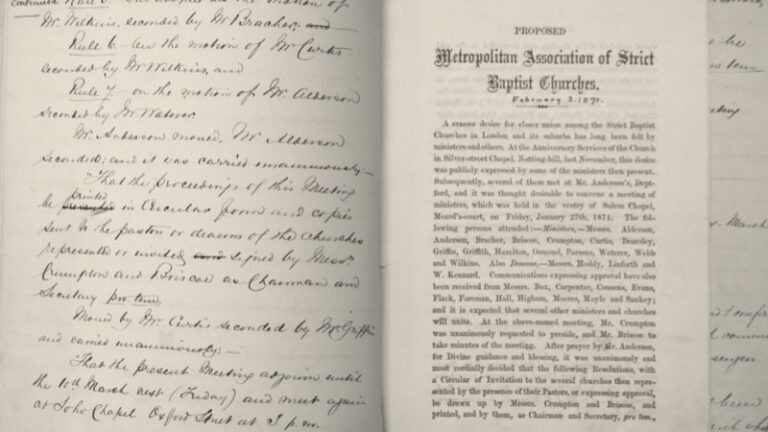 continued Rule 5 was adopted on the motion of
Mr Wilkins, seconded by Mr Bracher, and
Rule 6 on the motion of Mr Curtis
seconded by Mr Wilkins, and
Rule 7 on the motion of Mr. Alderson
seconded by Mr. Waterer.
Mr. Anderson moved, Mr Alderson
seconded; and it was carried unanimously:—
That the proceedings of this Meeting
printed
be presented in Circular form and copies
sent to the pastor or deacons of the churches
represented or invited and signed by Messrs
Crumpton and Briscoe as Chairman and
Secretary pro. tem.
Moved by Mr. Curtis seconded by Mr Griffin
and carried unanimously:—
That the present Meeting adjourn until
the 10th March next (Friday) and meet again
at Soho Chapel Oxford Street at 3 p.m.
PROPOSED
Metropolitan Association of Strict
Baptist Churches.
February 3. 1871.
A strong desire for closer union among the Strict Baptist
Churches in London and its suburbs has long been felt by
ministers and others. At the Anniversary Services of the Church
in Silver-street Chapel, Notting-hill, last November, this desire
was publicly expressed by some of the ministers then present.
Subsequently, several of them met at Mr. Anderson's, Dept-
ford, and it was thought desirable to convene a meeting of
ministers, which was held in the vestry of Salem Chapel,
Meard's-court, on Friday, January 27th, 1871. The fol-
lowing persons attended:—Ministers,—Messrs. Alderson,
Anderson, Bracher, Briscoe, Crumpton, Curtis, Dearsley,
Griffin, Griffith, Hazelton, Osmond, Parsons, Waterer, Webb
and Wilkins. Also Deacons,—Messrs. Moddy, Linforth and
W. Kennard. Communications expressing approval have also
been received from Messrs. Box, Carpenter, Cousens, Evans,
Flack, Foreman, Hall, Higham, Meeres, Moyle and Sankey;
and it is expected that several other ministers and churches
will unite. At the above-named meeting, Mr. Crumpton
was unanimously requested to preside, and Mr. Briscoe to
take minutes of the meeting. After prayer by Mr. Anderson,
for Divine guidance and blessing, it was unanimously and
most cordially decided that the following Resolutions, with
a Circular of Invitation to the several churches then repre-
sented by the presence of their Pastors, or expressing approval,
be drawn up by Messrs. Crumpton and Briscoe, and
printed, and by them, as Chairman and Secretary, pro tem.,
to be
March